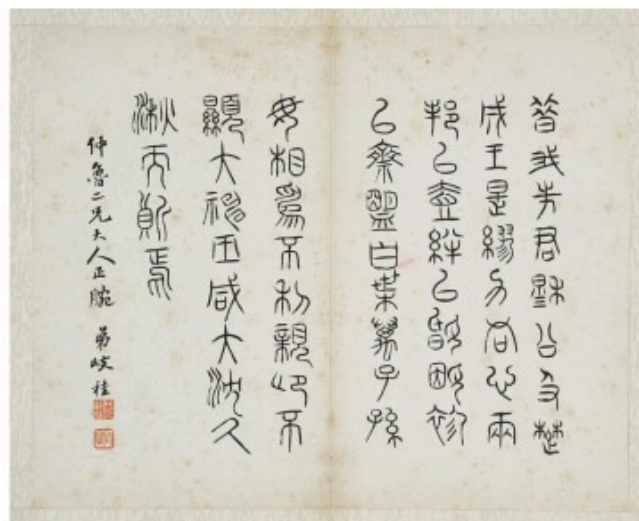 昔我先君穆公及楚
成王是繆力同心兩
邦以壹絆以婚姻袗
以齋盟曰葉萬子孫
毋相為不利親卬不
顯大神巫咸大沈久
湫而質焉
仲魯二兄大人正腕 弟